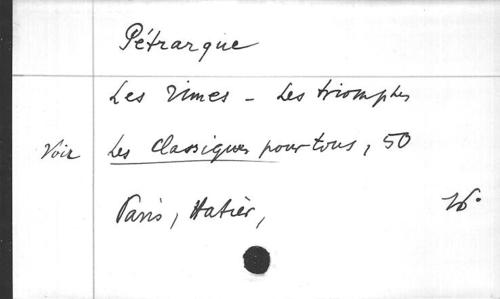 Pétrarque
Les rimes - Les triomphes
Voir Les classiques pour tous, 50
Paris, Hatier,